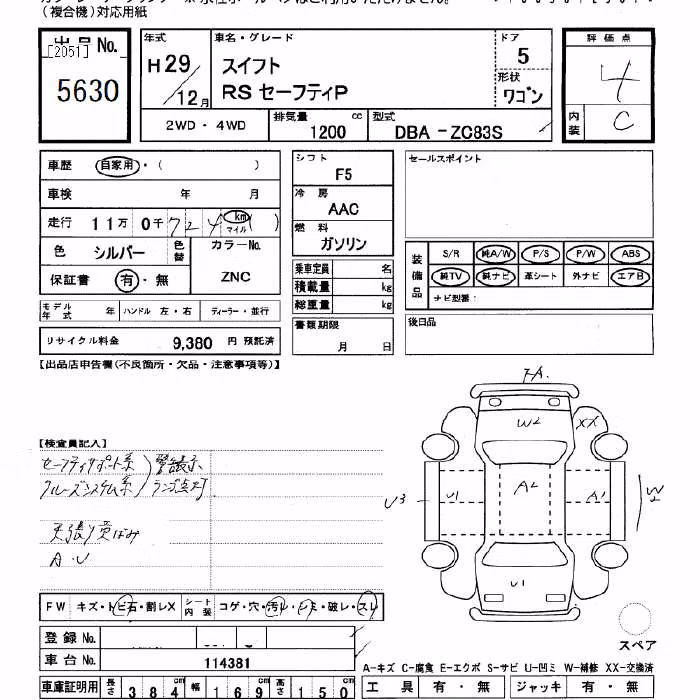 (複合機)対応用紙
出品No.
[2051]
5630
年式
H29/12月
車名・グレード
スイフト
RS セーフティP
ドア
5
形状
ワゴン
2WD・4WD
排気量
1200 cc
型式
DBA - ZC83S
評価点
4
内装
C
車歴 自家用・( )
車検 年 月
走行 11万 0千 724 km マイル ( )
色 シルバー 色替 カラーNo.
保証書 有・無 ZNC
モデル年式 年 ハンドル 左・右 ディーラー・並行
リサイクル料金 9,380 円 預託済
シフト
F5
冷房
AAC
燃料
ガソリン
乗車定員 名
積載量 kg
総重量 kg
書類期限
月 日
セールスポイント
装備品
S/R 純A/W P/S P/W ABS
純TV 純ナビ 革シート 外ナビ エアB
ナビ型番:
後日品
【出品店申告欄(不良箇所・欠品・注意事項等)】
【検査員記入】
セーフティサポート系 警告表示
クルーズシステム系 ランプ点灯
天張り
A・U
FA.
W2
XX
U3
U1
A2
A1
W2
U1
スペア
FW キズ・トビ石・割レX シート内装 コゲ・穴・汚レ・シミ・破レ・スレ
登録No.
車台No. 114381
車庫証明用 長さ 384cm 幅 169cm 高さ 150cm
A-キズ C-腐食 E-エクボ S-サビ U-凹ミ W-補修 XX-交換済
工具 有・無 ジャッキ 有・無